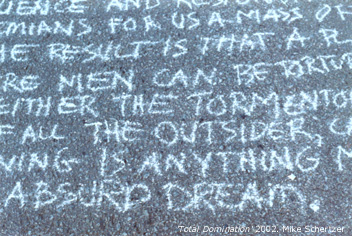 UENCE AND RESO
EMIANS FOR US A MASS OF
HE RESULT IS THAT A P
RE MEN CAN BE TORTUR
EITHER THE TORMENTO
F ALL THE OUTSIDER, CA
NING IS ANYTHING M
ABSURD DREAM.
'Total Domination' 2002. Mike Schertzer